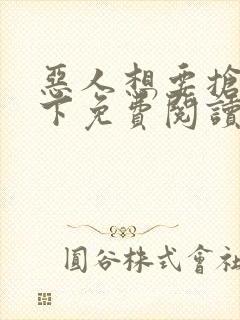 惡人想要搶
下免費閱讀
圓谷株式會社